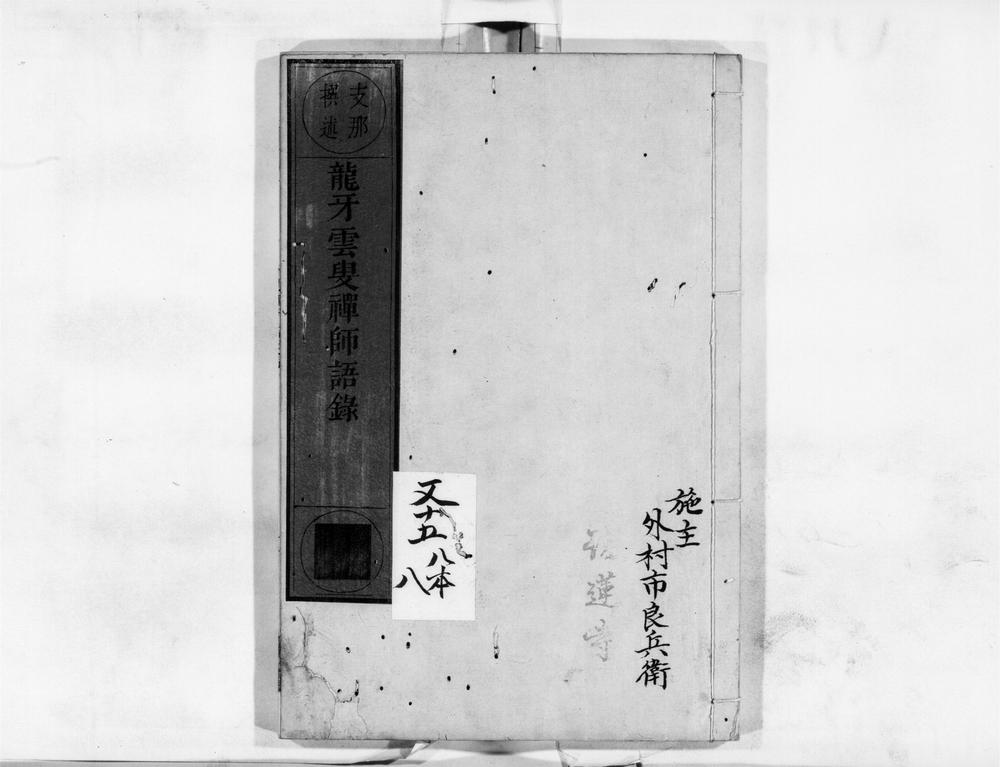 支那
撰述
龍牙雲叟禪師語錄
施主
外村市良兵衛
蓮寺
又十五
八本
八